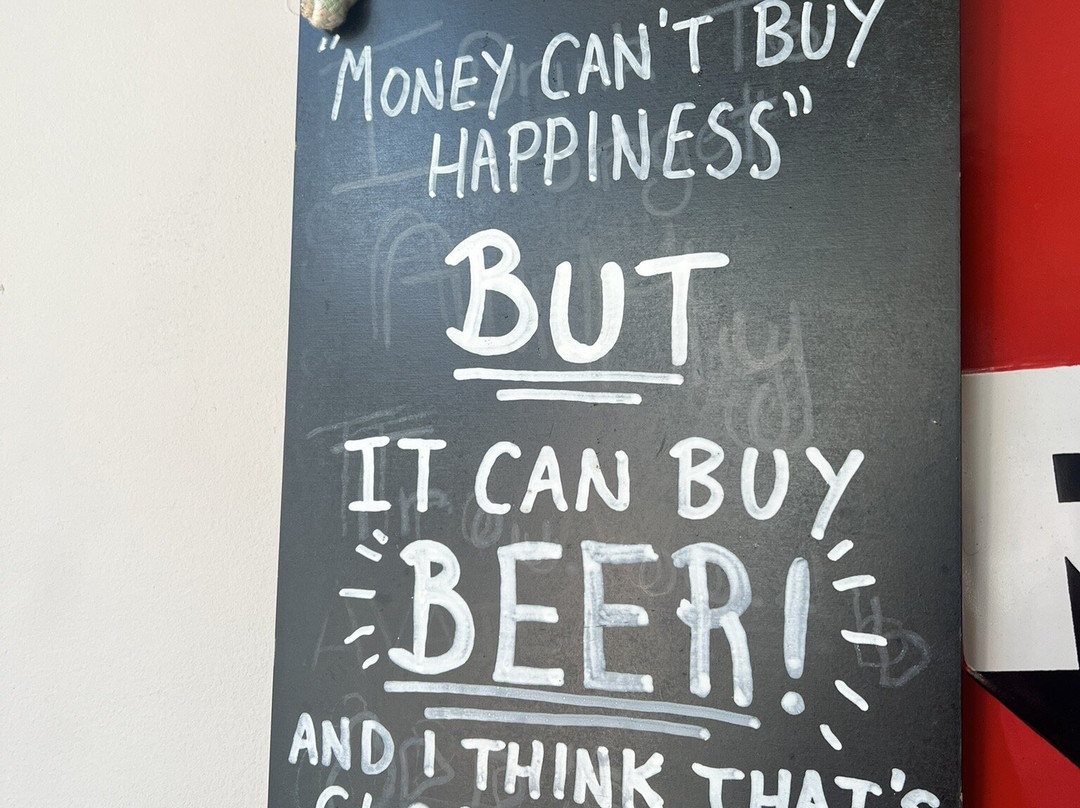 "MONEY CAN'T BUY
HAPPINESS"
BUT
IT CAN BUY
BEER!
AND I THINK THAT'S